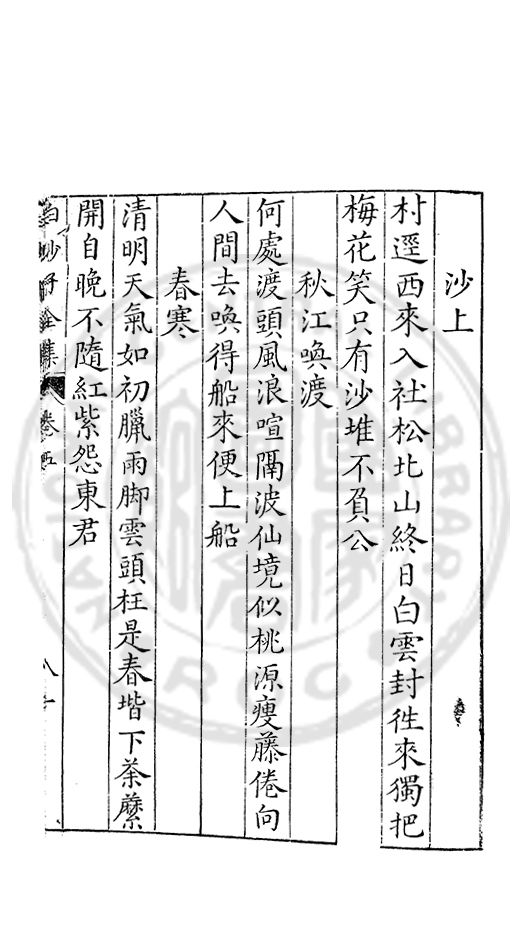 沙上
村逕西來入社松北山終日白雲封徃來獨把
梅花笑只有沙堆不負公
秋江喚渡
何處渡頭風浪喧隔波仙境似桃源瘦藤倦向
人間去喚得船來便上船
春寒
清明天氣如初臘雨脚雲頭枉是春堦下荼蘼
開自晚不隨紅紫怨東君
全集
卷五
LIBRARY